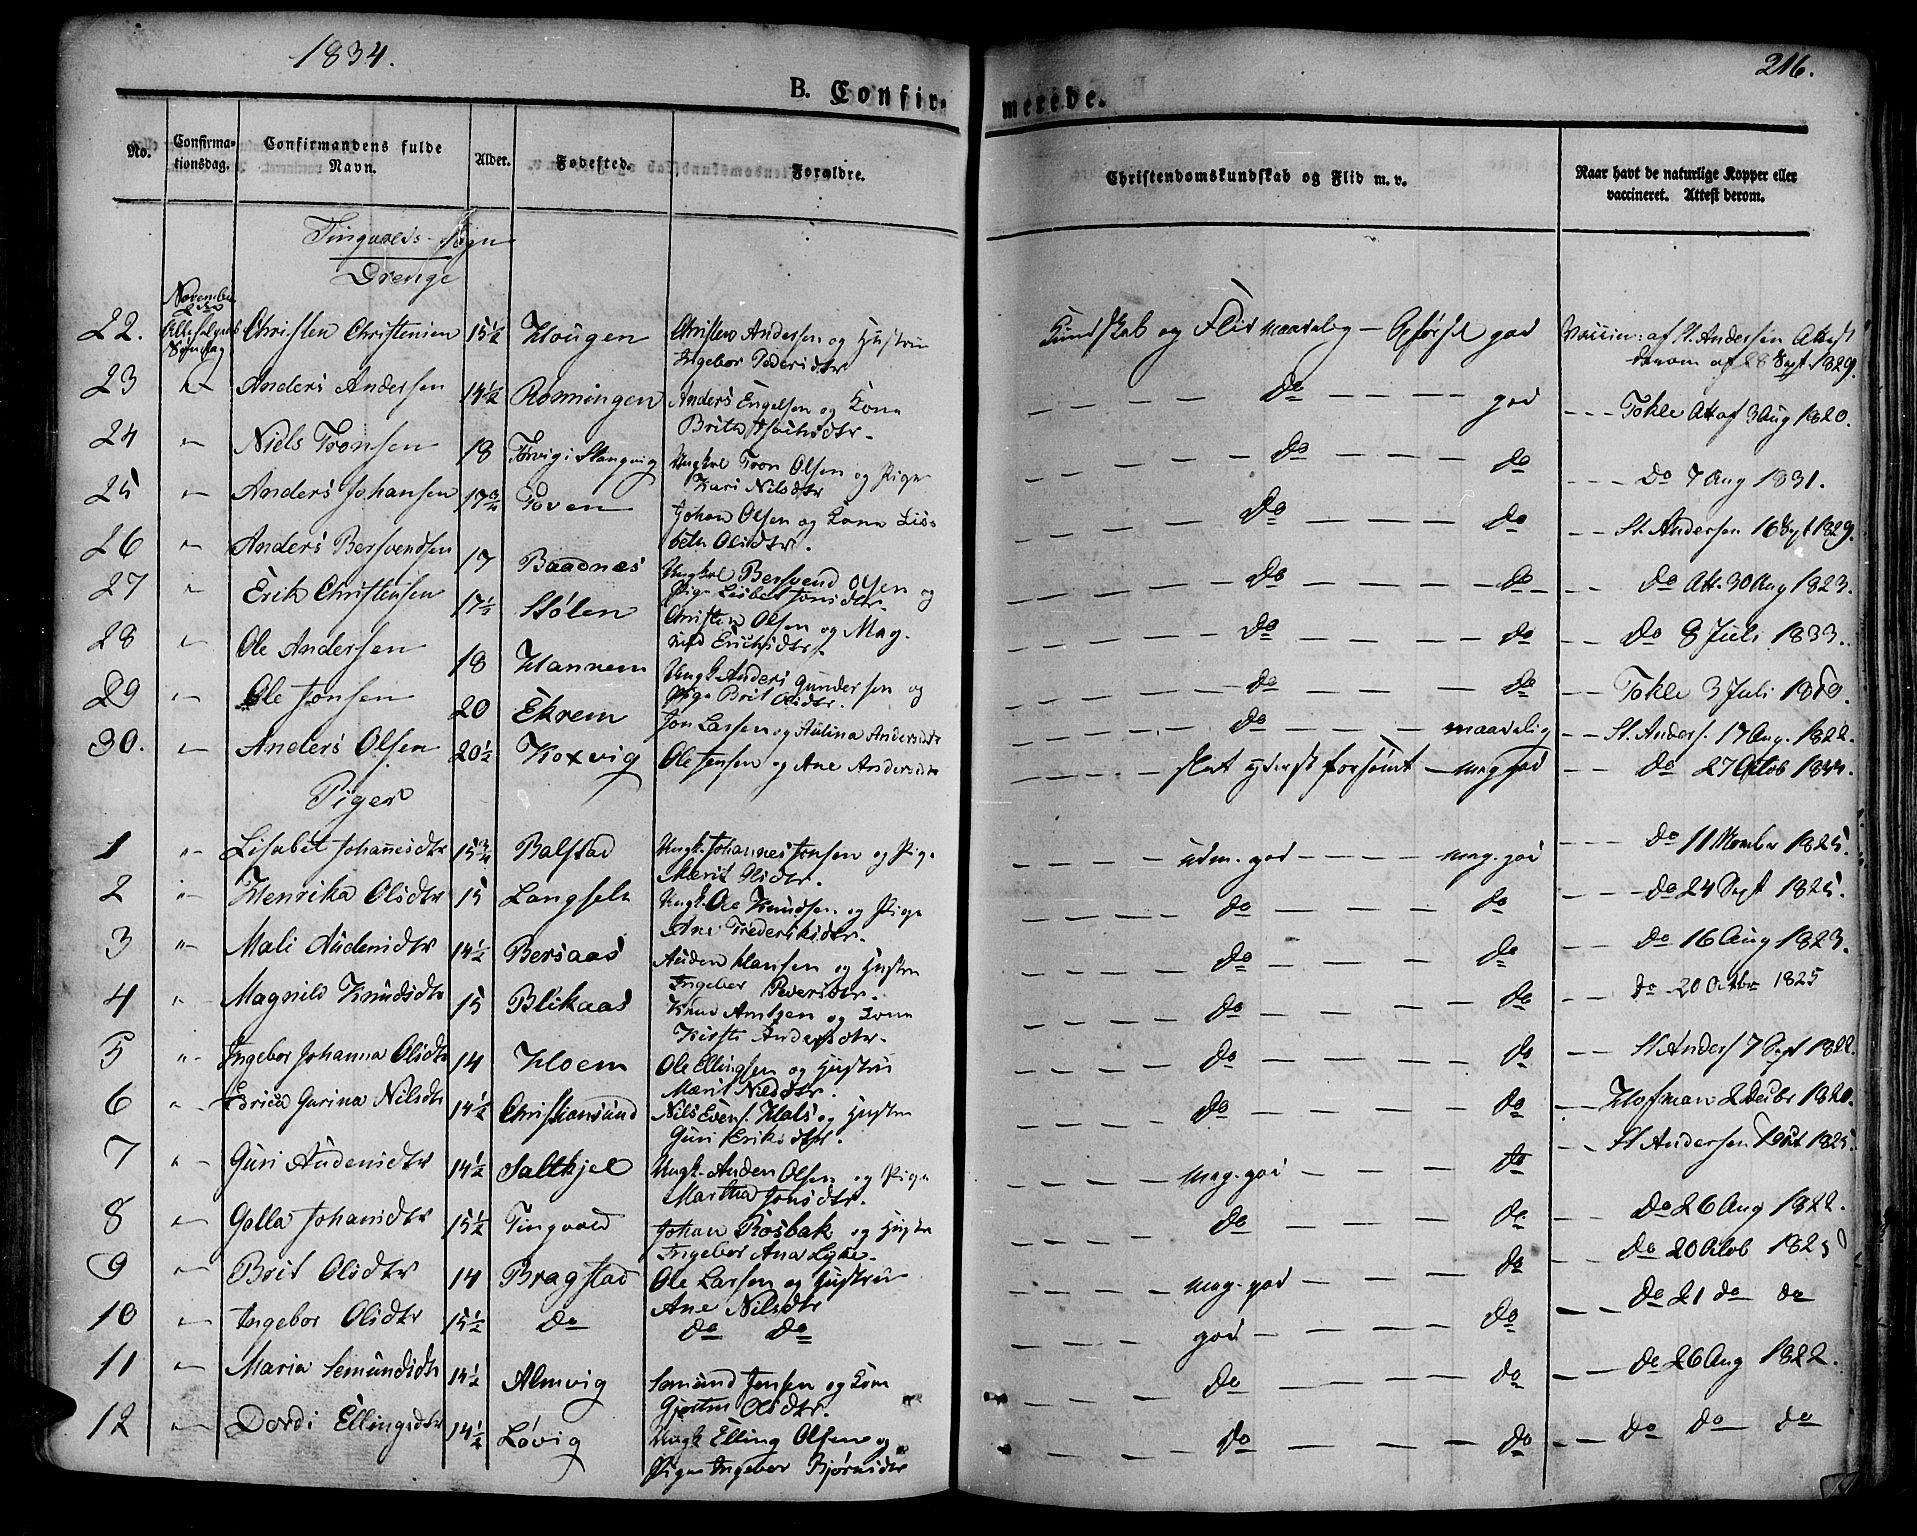 1834.
216.
B. Confirmerede.
No.
Confirmationsdag.
Confirmandens fulde Navn.
Alder.
Fødested.
Forældre.
Christendomskundskab og Flid m. v.
Naar havt de naturlige Kopper eller vaccineret. Attest derom.
Tingvolds Sogn
Drenge
22. November Allehelgens Søndag Christen Christensen 15½ Hougen Christen Andersen og Hustru Ingebor Pedersdtr Kundskab og Flid maadelig — Opførsel god Vaccin: af St. Andersen Attest derom af 28 Sept 1829.
23 " Anders Andersen 14½ Rønningen Anders Engelsen og Kone Brita do god Tokle Att af 3 Aug 1820.
24 " Niels Tronsen 18 Torvig i Stangvig Ungkrl Tron Olsen og Pige Kari Nilsdtr do do Do 7 Aug 1831.
25 " Anders Johansen 17¾ Toven Johan Olsen og Kone Lisbeth Olsdtr. do do St. Andersen 16 Sept 1829.
26 " Anders Bersvendsen 17 Baadnes Ungkrl Bersvend Olsen og Pige Lisbet Jonsdtr. do do do Att. 30 Aug 1823.
27 " Erik Christensen 17½ Stølen Christen Olsen og Magnild Erichsdtr. do do do 8 Juli 1833.
28 " Ole Andersen 18 Hannem Ungk Anders Gundersen og Pige Brit Olsdtr. do do Tokle 3 Juli 1819.
29 " Ole Jonsen 20 Ekrem Jon Larsen og Aulina Andersdtr do maadelig St. Anders. 17 Aug. 1822.
30. " Anders Olsen 20½ Koxvig Ole Jensen og Ane Andersdtr slet yderst forsømt — mag god do 27 Octob 1834.
Piger
1 " Lisabet Johannesdtr 15¾ Balstad Ungk. Johannes Jonsen og Pige Marit Olsdtr. udm. god mag. god do 11 Novmber 1825.
2 " Henrika Olsdtr 15 Langseln Ungk. Ole Knudsen og Pige Ane Frederiksdtr. do do do 24 Sept 1825.
3 " Mali Audensdtr 14½ Bersaas Auden Hansen og Hustru Ingebor Pedersdtr. do do do 16 Aug 1823.
4 " Magnild Knudsdtr 15 Blikaas Knud Arntsen og Kone Kirsti Andersdtr. do do do 20 Octbr 1825
5 " Ingebor Johanna Olsdtr 14 Hoem Ole Ellingsen og Hustru Marit Nilsdtr. do do St Anders 7 Sept 1822.
6 " Edrica Gurina Nilsdtr 14½ Christiansund Nils Evens. Hals og Hustru Guri Eriksdtr. do do Hofman 2 Decbr 1820.
7 " Guri Audensdtr 14½ Saltkjel Ungk. Auden Olsen og Pige Martha Jonsdtr. mag. god do St Andersen 1 Oct 1825.
8 " Golla Johansdtr 15½ Tingvold Johan Rosbak og Hustru Ingebor Ana Lyke. do do do 26 Aug 1822.
9 " Brit Olsdtr 14 Bragstad Ole Larsen og Hustru Ane Nilsdtr mag. god do do 20 Octob 1825
10 " Ingebor Olsdtr 15½ do do do god do do 21 do do
11 " Maria Semundsdtr 14½ Almvig Semund Jensen og Kone Gjertru Olsdtr. do do do 26 Aug 1822.
12 " Dordi Ellingsdtr 14½ Løvig Ungk Elling Olsen og Pige Ingebor Bjørnsdtr do do do do do